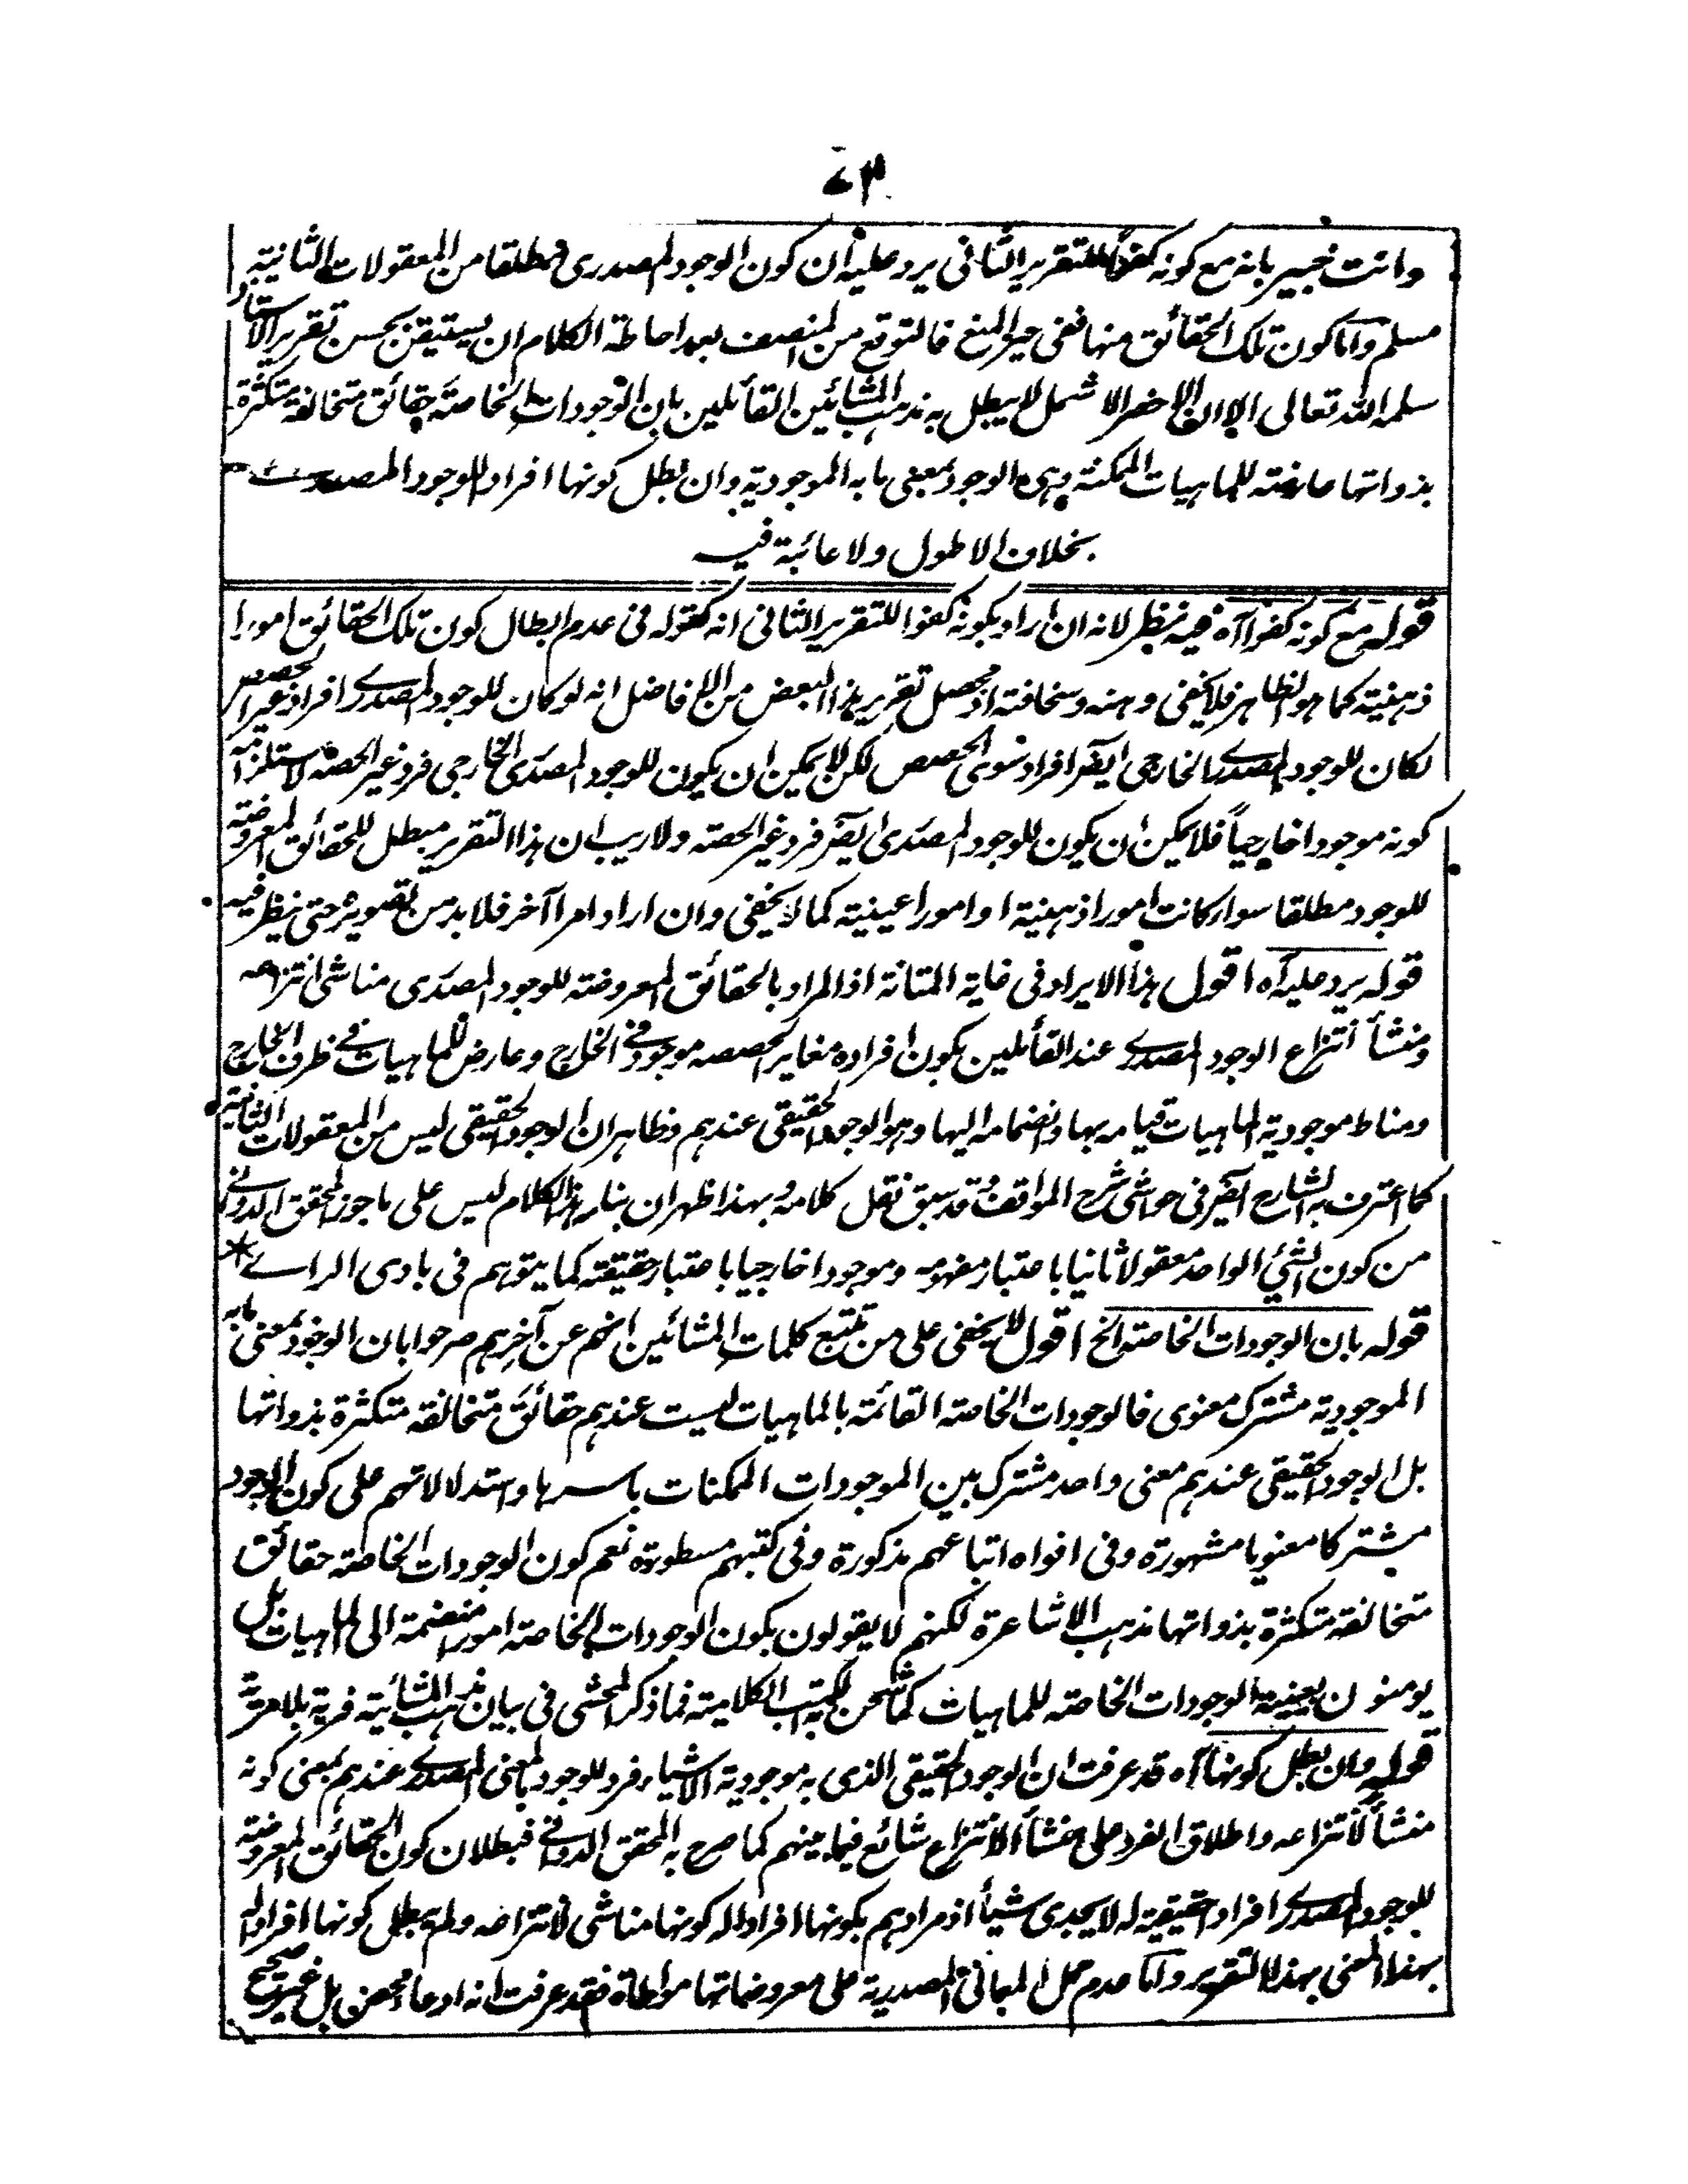 ٧٣
وانت خبير بانه مع كونه كفوا للتقرير الثانى يرد عليه ان كون الوجود المصدرى مطلقا من المعقولات الثانية
مسلم واما كون تلك الحقائق منها ففى حيز المنع فالمتوقع من المنصف بعد احاطة الكلام ان يستيقن بحسن تقرير الاستاذ
سلمه الله تعالى الا ان الاخصر الاشمل لا يبطل به مذهب المشائين القائلين بان الوجودات الخاصة حقائق متخالفة متكثرة
بذواتها عارضته للماهيات الممكنة وهى الوجود بمعنى ما به الموجودية وان بطل كونها افراد للوجود المصدرے
بخلاف الاطول ولا عائبة فيه
قوله مع كونه كفوا آه فيه نظر لانه ان اراد بكونه كفوا للتقرير الثانى انه كقوله فى عدم ابطال كون تلك الحقائق امورا
ذهنية كما هو الظاهر فلا يخفى وهنه وسخافته اذ محصل تقرير هذا البعض من الافاضل انه لو كان للوجود المصدرے افراد غير الحصص
لكان للوجود المصدرے الخارجى ايضر افراد سوى الحصص لكن لا يمكن ان يكون للوجود المصدرى الخارجى فرد غير الحصة لاستلزامه
كونه موجودا خارجياً فلا يمكن ان يكون للوجود المصدرى ايضر فرد غير الحصته ولا ريب ان هذا التقرير مبطل للحقائق المعروضته
للوجود مطلقا سواء كانت امورا ذهنية او امورا عينية كما لا يخفى وان اراد امرا آخر فلا بد من تصويره حتى ينظر فيه
قوله يرد عليه آه اقول هذا الايراد فى غاية المتانة اذ المراد بالحقائق المعروضته للوجود المصدرى مناشى انتزاعه
ومنشأ انتزاع الوجود المصدرے عند القائلين بكون افراده مغاير الحصصه موجود فے الخارج وعارض للماهيات فے ظرف الخارج
ومناط موجودية الماهيات قيامه بها وانضمامه اليها وهو الوجود الحقيقى عندهم وظاهر ان الوجود الحقيقى ليس من المعقولات الثانية
كما اعترف به الشارح ايضر فى حواشى شرح المواقف وقد سبق نقل كلامه وبهذا ظهر ان بناء هذا الكلام ليس على ما جوز المحقق الدوانى
من كون الشئ الواحد معقولا ثانيا باعتبار مفهومه وموجودا خارجيا باعتبار حقيقته كما يتوهم فى بادى الراے *
قوله بان الوجودات الخاصته الخ اقول لا يخفى على من تتبع كلمات المشائين انهم عن آخرهم صرحوا بان الوجود بمعنى ما به
الموجودية مشترك معنوى فالوجودات الخاصته القائمته بالماهيات ليست عندهم حقائق متخالفه متكثرة بذواتها
بل الوجود الحقيقى عندهم معنى واحد مشترك بين الموجودات الممكنات باسرها واستدلالاتهم على كون الوجود
مشتركا معنويا مشهورة وفى افواه اتباعهم مذكورة وفى كتبهم مسطورة نعم كون الوجودات الخاصته حقائق
متخالفة متكثرة بذواتها مذهب الاشاعرة لكنهم لا يقولون بكون الوجودات الخاصته امور منضمة الى الماهيات بل
يومنون بعينية الوجودات الخاصته للماهيات كما شحن به الكتب الكلاميته فما ذكر المحشى فى بيان مذهب المشائية فرية بلا مرية
قوله وان بطل كونها آه قد عرفت ان الوجود الحقيقى الذى به موجودية الاشياء فرد للوجود بالمعنى المصدرے عندهم بمعنى كونه
منشأ لانتزاعه واطلاق الفرد على منشأ الانتزاع شائع فيما بينهم كما صرح به المحقق الدوانى فبطلان كون الحقائق المعروضته
للوجود المصدرے افراد حقيقية له لا يجدى شيأ اذ مرادهم بكونها افرادا له كونها مناشى لانتزاعه ولم يبطل كونها افراد له
بهذا المعنى بهذا التقرير واما عدم حمل المعانى المصدرية على معروضاتها مواطاة فقد عرفت انه ادعاء محض بل غير صحيح